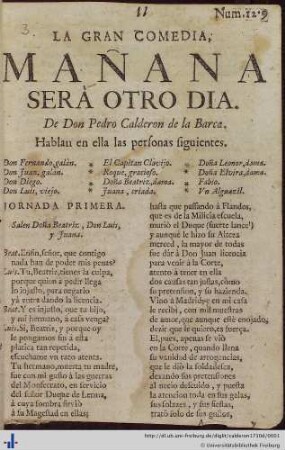 Num. 129
3.
LA GRAN COMEDIA,
MAÑANA
SERÀ OTRO DIA.
De Don Pedro Calderon de la Barca.
Hablan en ella las personas siguientes.
Don Fernando, galàn.
Don Juan, galàn.
Don Diego.
Don Luis, viejo.
El Capitan Clavijo.
Roque, gracioso.
Doña Beatriz, dama.
Juana, criada.
Doña Leonor, dama.
Doña Elvira, dama.
Fabio.
Un Alguacil.
JORNADA PRIMERA.
Salen Doña Beatriz, Don Luis,
y Juana.
Beat. Enfin, señor, que contigo
nada han de poder mis penas?
Luis. Tu, Beatriz, tienes la culpa,
porque quien à pedir llega
lo injusto, parà negarlo
yà viene dando la licencia.
Beat. Y es injusto, que tu hijo,
y mi hermano, à casa venga?
Luis. Si, Beatriz, y porque oy
le pongamos fin à esta
platica tan repetida,
escuchame un rato atenta.
Tu hermano, muerta tu madre,
fue con mi gusto à las guerras
del Monferrato, en servicio
del señor Duque de Lerma,
à cuya sombra sirviò
à su Magestad en ellas;
hasta que passando à Flandes,
que es de la Milicia escuela,
murió el Duque (fuerte lance!)
y aunque le hizo su Alteza
merced, la mayor de todas
fue dàr à Don Juan licencia
para venir à la Corte,
atento à tener en ella
dos causas tan justas, como
su pretension, y su hazienda.
Vino à Madrid, en mi casa
le recibì, con mil muestras
de amor, que aunque esté enojado,
dezir que le quiero, es fuerça.
El, pues, apenas se viò
en la Corte, quando llena
su vanidad de arrogancias,
que le diò la soldadesca,
dexando sus pretensiones
al necio descuido, y puesta
la atencion toda en sus galas,
sus solares, y sus fiestas,
tratò solo de sus gustos,
A
http://dl.ub.uni-freiburg.de/diglit/calderon1710d/0001
Universitätsbibliothek Freiburg